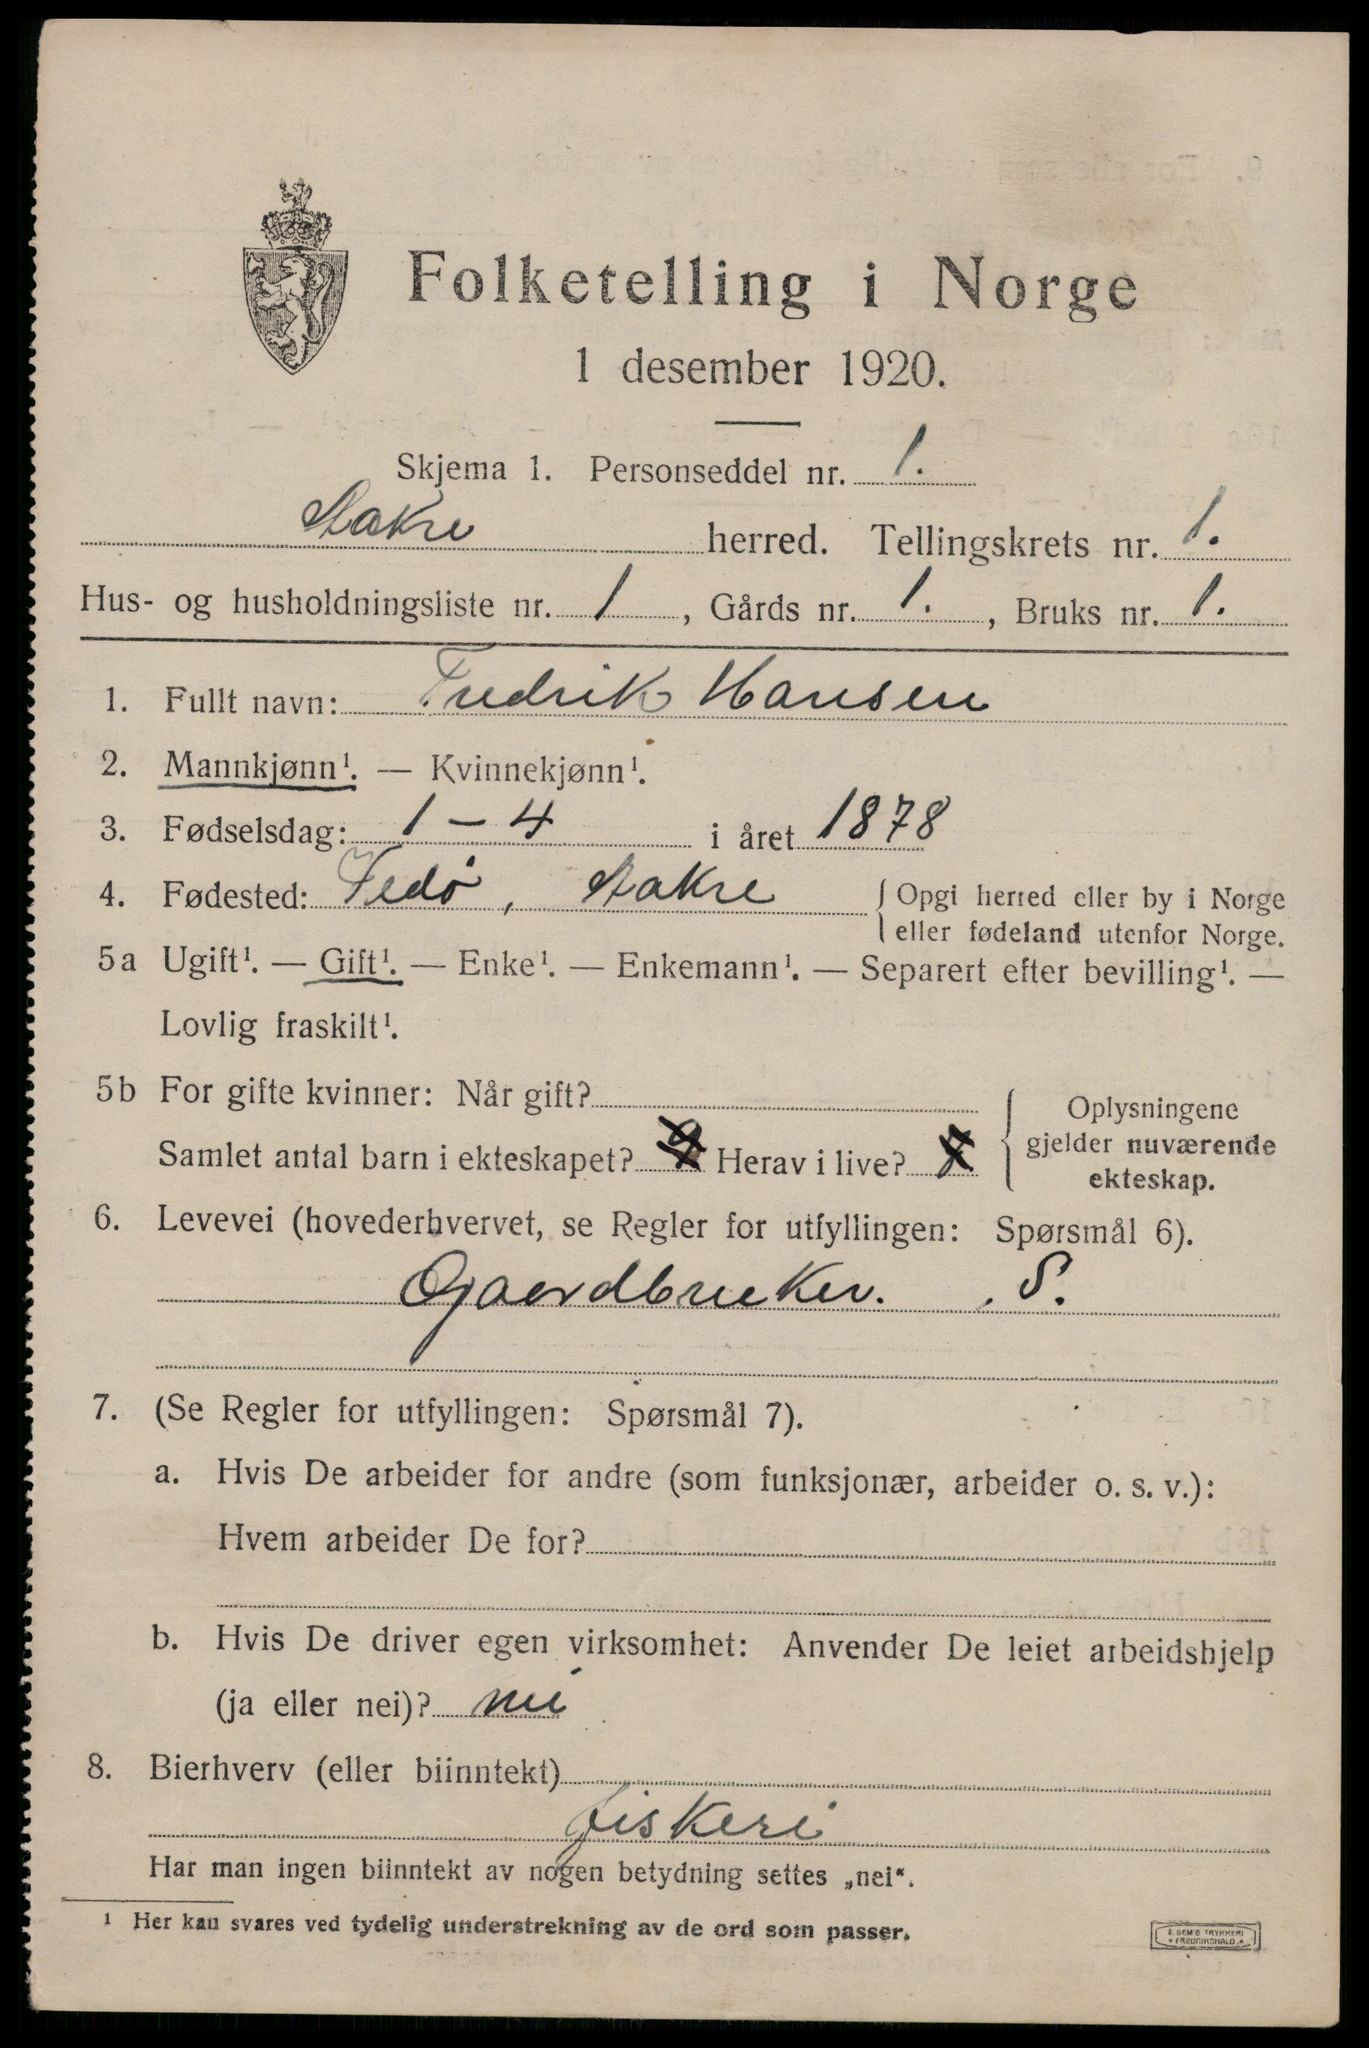 Folketelling i Norge
1 desember 1920.
Skjema 1. Personseddel nr. 1.
Aakre herred. Tellingskrets nr. 1.
Hus- og husholdningsliste nr. 1, Gårds nr. 1., Bruks nr. 1.
1. Fullt navn: Fredrik Hansen
2. Mannkjønn¹. — Kvinnekjønn¹.
3. Fødselsdag: 1 - 4 i året 1878
4. Fødested: Fedø, Aakre {Opgi herred eller by i Norge
eller fødeland utenfor Norge.
5a Ugift¹. — Gift¹. — Enke¹. — Enkemann¹. — Separert efter bevilling¹. —
Lovlig fraskilt¹.
5b For gifte kvinner: Når gift?
Samlet antal barn i ekteskapet? 9 Herav i live?
{Oplysningene
gjelder nuværende
ekteskap.
6. Levevei (hovederhvervet, se Regler for utfyllingen: Spørsmål 6).
Gaardbruker. S.
7. (Se Regler for utfyllingen: Spørsmål 7).
a. Hvis De arbeider for andre (som funksjonær, arbeider o. s. v.):
Hvem arbeider De for?
b. Hvis De driver egen virksomhet: Anvender De leiet arbeidshjelp
(ja eller nei)? nei
8. Bierhverv (eller biinntekt)
fiskeri
Har man ingen biinntekt av nogen betydning settes „nei“.
¹ Her kan svares ved tydelig understrekning av de ord som passer.
E. SEM'S TRYKKERI
FREDRIKSHALD